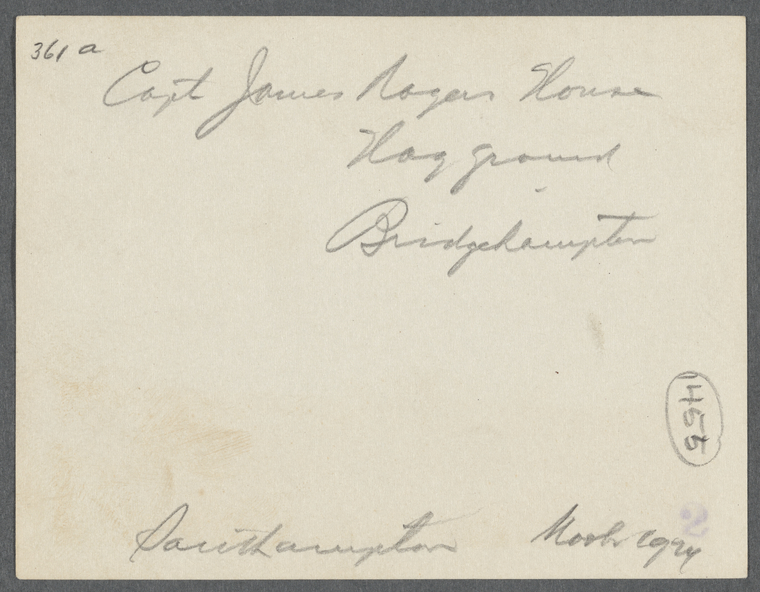 361 a
Capt James Rogers House
Hay ground
Bridgehampton
1455
2
Southampton